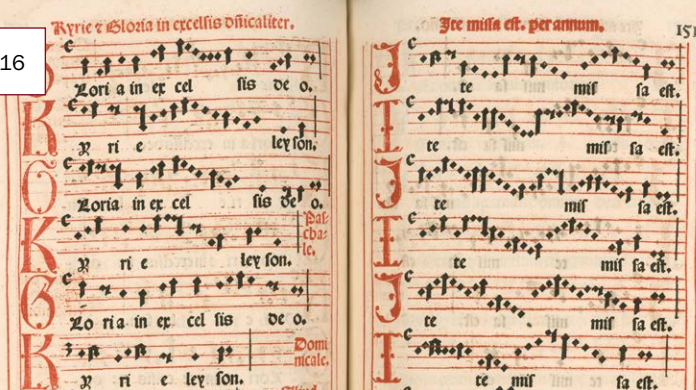 16
Kyrie ⁊ Gloria in excelsis dñicaliter.
G
Lori a in ex cel sis de o.
K
y ri e ley son.
G
Loria in ex cel sis de o.
K
y ri e ley son.
Pas-
cha-
le.
G
Lo ri a in ex cel sis de o.
K
y ri e ley son.
Domi
nicale.
Ite missa est. per annum.
I
te mis sa est.
I
te mis sa est.
I
te mis sa est.
I
te mis sa est.
I
te mis sa est.
I
te mis sa est.